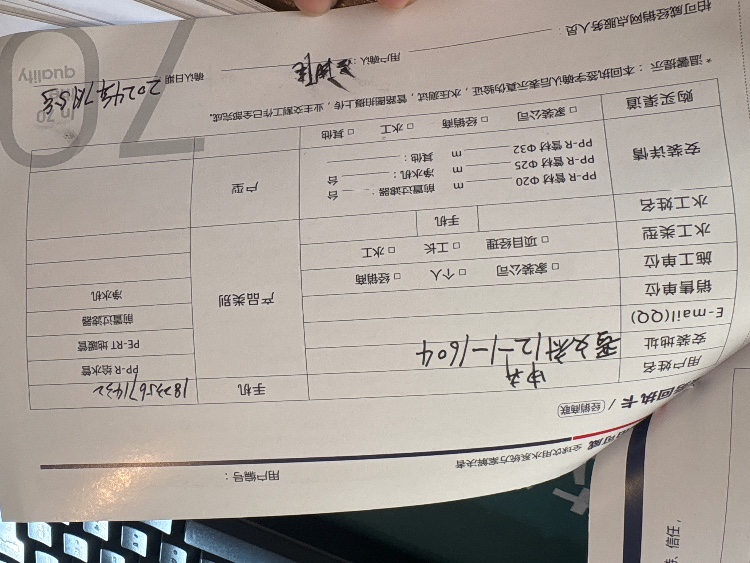 用户编号：
全球饮用水系统方案解决者
回执卡 / 经销商联
用户姓名 申 手机 18235671432
安装地址 12-1-1604 PP-R 给水管
E-mail(QQ) PE-RT 地暖管
销售单位 产品类别 前置过滤器
施工单位 □ 家装公司 □ 个人 □ 经销商 净水机
水工类型 □ 项目经理 □ 工长 □ 水工
水工姓名 手机
安装详情 PP-R 管材 Φ20 m 前置过滤器： 台 户型
PP-R 管材 Φ25 m 净水机： 台
PP-R 管材 Φ32 m 其他：
购买渠道 □ 家装公司 □ 经销商 □ 水工 □ 其他
* 温馨提示：本回执签字确认后表示真伪验证，水压测试，管路拍照上传，业主交割工作已全部完成。
柏可威经销网点服务人员： 用户确认： 确认日期 2024年7月5号
70
In 70
quality
、信任，